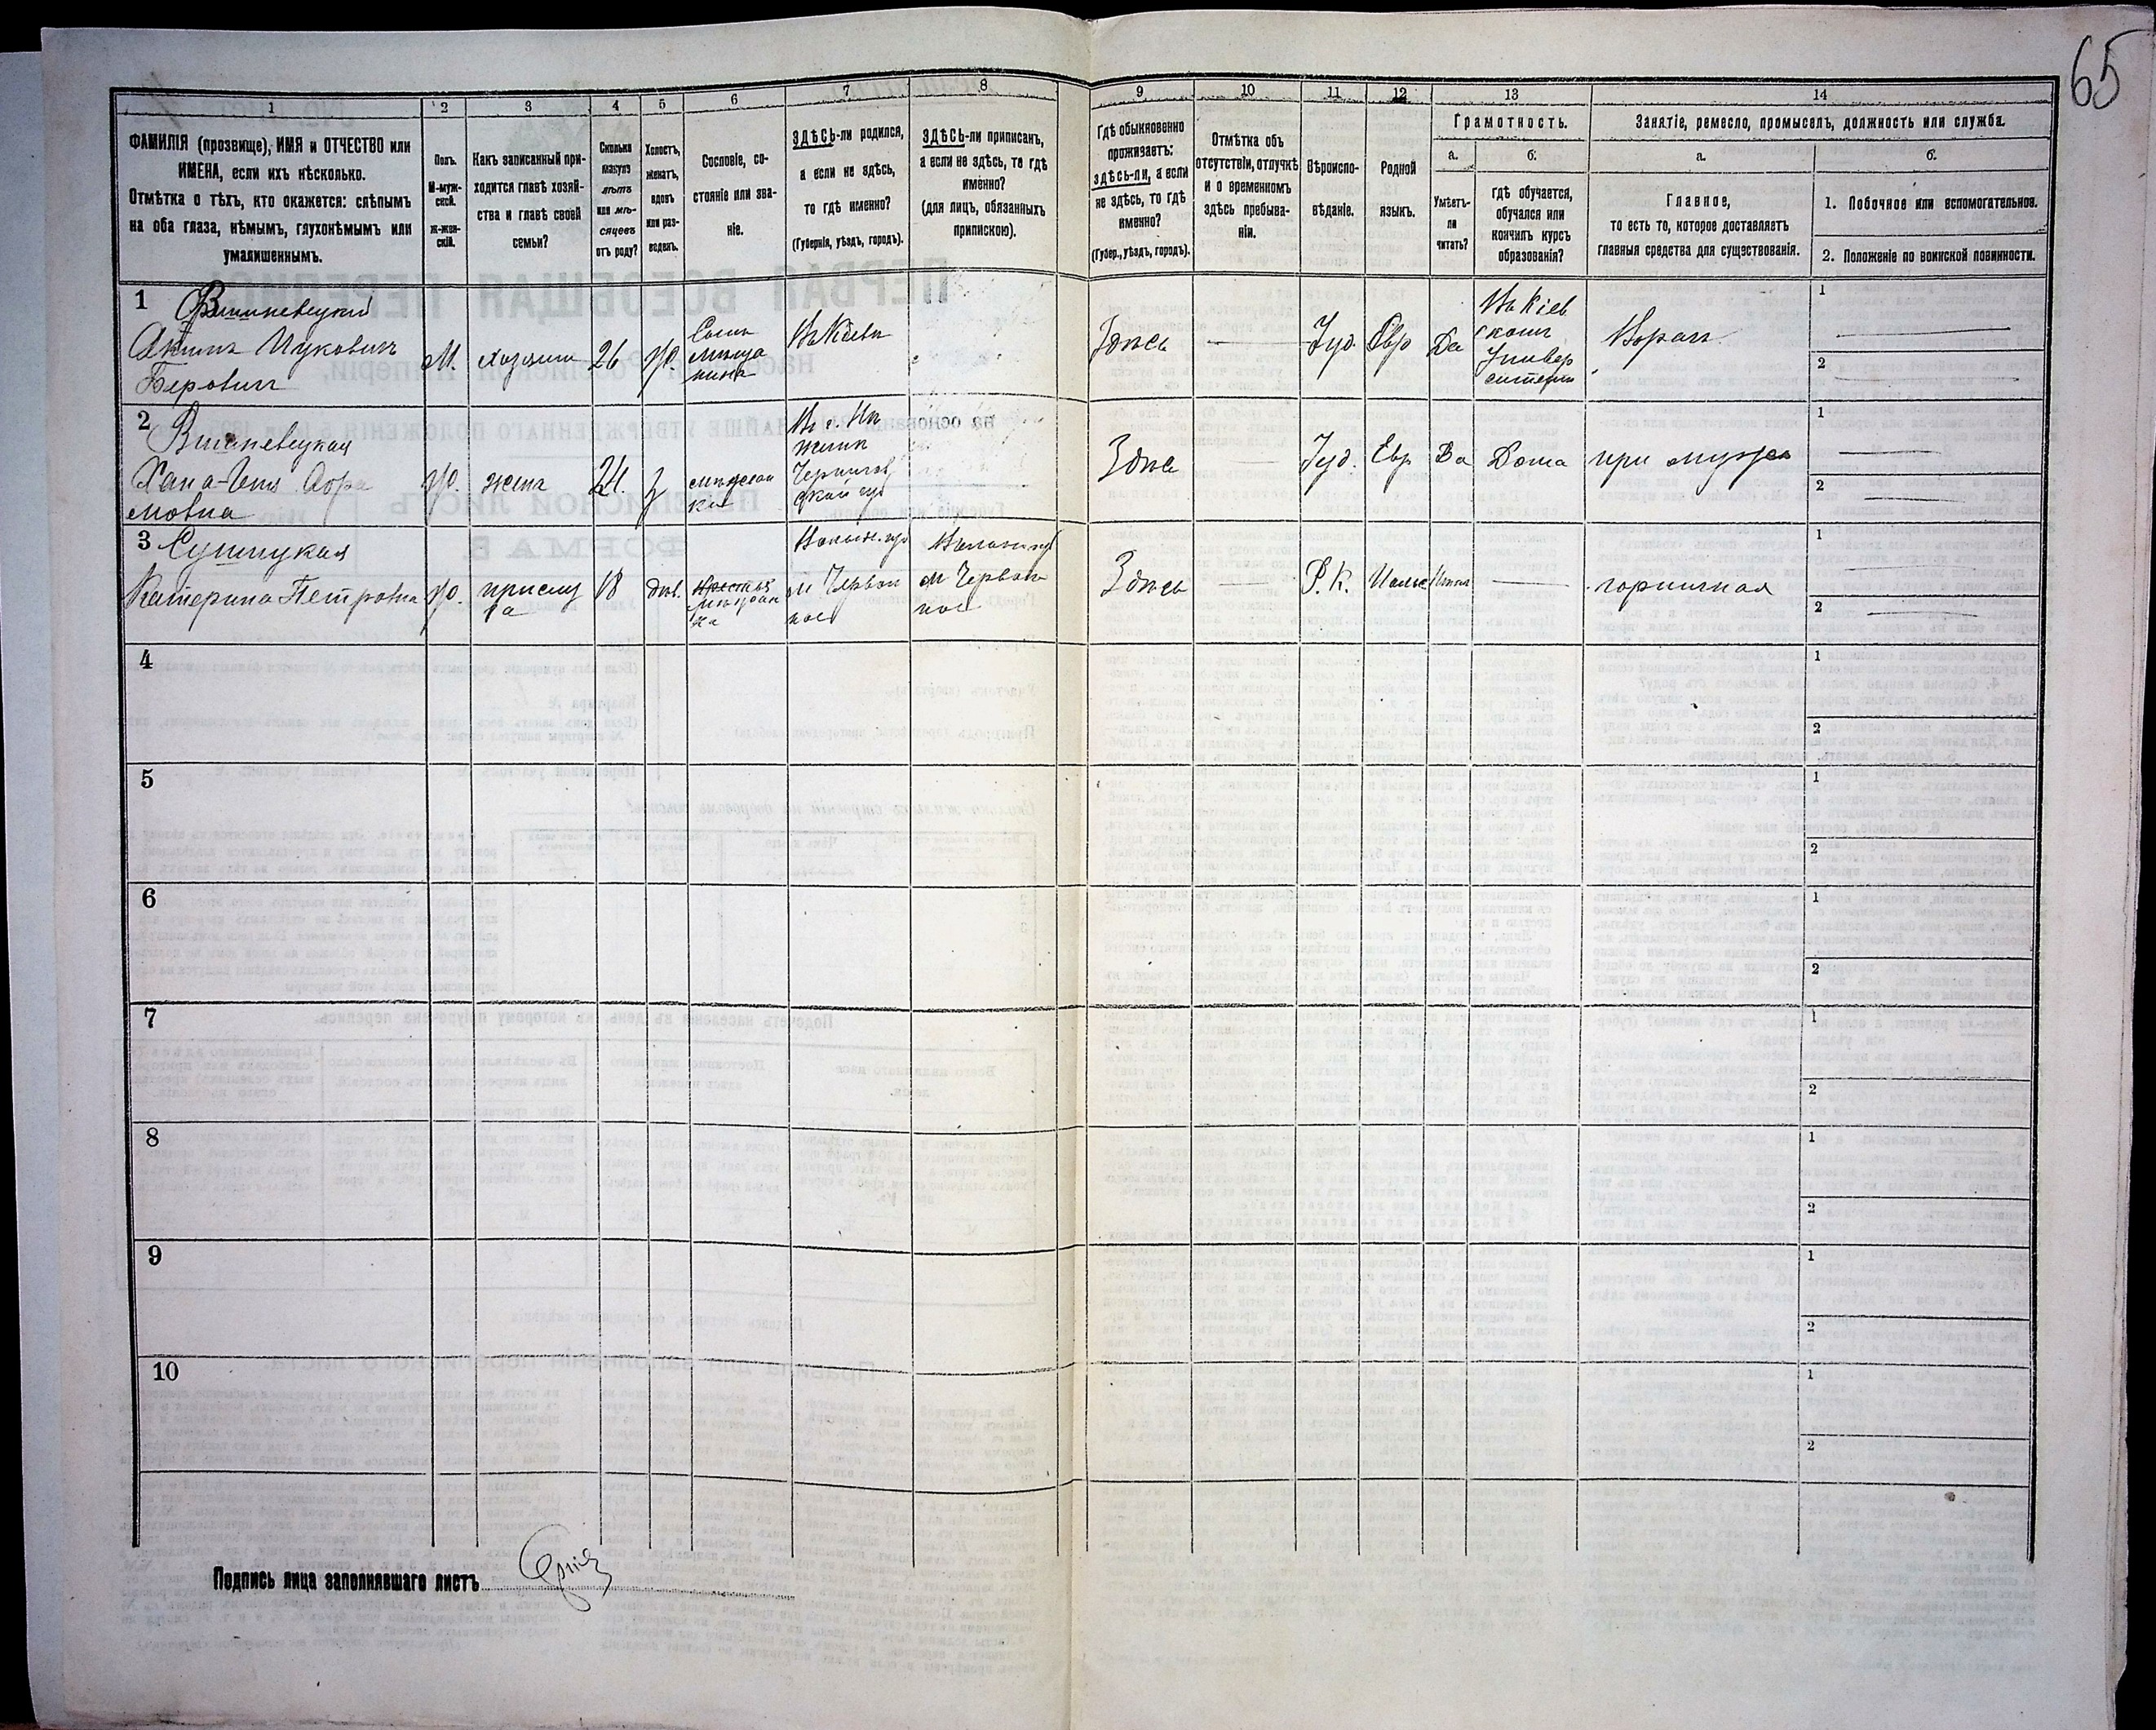 65
1
2
3
4
5
6
7
8
9
10
11
12
13
14
ФАМИЛІЯ (прозвище), ИМЯ и ОТЧЕСТВО или
ИМЕНА, если ихъ нѣсколько.
Отмѣтка о тѣхъ, кто окажется: слѣпымъ
на оба глаза, нѣмымъ, глухонѣмымъ или
умалишеннымъ.
Полъ.
М-муж-
ской.
ж-жен-
скій.
Какъ записанный при-
ходится главѣ хозяй-
ства и главѣ своей
семьи?
Сколько
минуло
лѣтъ
или мѣ-
сяцевъ
отъ роду?
Холостъ,
женатъ,
вдовъ
или раз-
веденъ.
Сословіе, со-
стояніе или зва-
ніе.
ЗДѢСЬ-ли родился,
а если не здѣсь,
то гдѣ именно?
(Губернія, уѣздъ, городъ).
ЗДѢСЬ-ли приписанъ,
а если не здѣсь, то гдѣ
именно?
(для лицъ, обязанныхъ
припискою).
Гдѣ обыкновенно
проживаетъ:
здѣсь-ли, а если
не здѣсь, то гдѣ
именно?
(Губер., уѣздъ, городъ).
Отмѣтка объ
отсутствіи, отлучкѣ
и о временномъ
здѣсь пребыва-
ніи.
Вѣроиспо-
вѣданіе.
Родной
языкъ.
Грамотность.
а.
Умѣетъ-
ли
читать?
б.
гдѣ обучается,
обучался или
кончилъ курсъ
образованія?
Занятіе, ремесло, промыселъ, должность или служба.
а.
Главное,
то есть то, которое доставляетъ
главныя средства для существованія.
б.
1. Побочное или вспомогательное.
2. Положеніе по воинской повинности.
1 Вишневецкій
Акимъ Ицковичъ
Беровичъ
М.
хозяинъ
26
Ж.
мѣща
нинъ
Въ Кіевѣ
Здѣсь
Іуд.
Евр
Да
Въ Кіев
скомъ
Универ
ситетѣ
1
2
2 Вишневецкая
Хана-
мовна
Ж.
жена
24.
З
Въ г. Нѣ
жинѣ
Чернигов
ской гу
Здѣсь
Іуд.
Евр
Да
Дома
при мужѣ
1
2
3
Катерина Петровна
Ж.
прислу
га
18
Дѣв.
Волын. гу
м Червон
ное
м Червон
ное
Здѣсь
Р. К.
горничная
1
2
4
1
2
5
1
2
6
1
2
7
1
2
8
1
2
9
1
2
10
1
2
Подпись лица заполнявшаго листъ